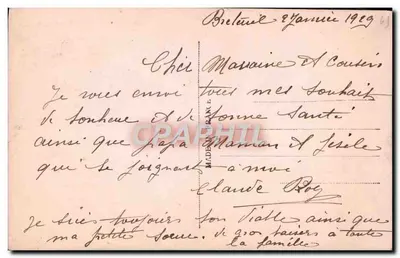 Breteuil 2 Janvier 1929
Cher Massaine et Cousin
Je vous envoi tous mes souhait
de bonheur et de bonne santé
ainsi que papa Maman et Gisèle
qui se joignent à moi
Claude Roy
Je suis toujours ton Diable ainsi que
ma petite soeur. de gros baisers à toute
la famille
CPRPHIL